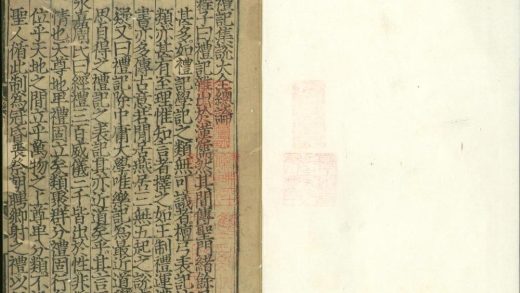 禮記集說大全總論
程子曰禮記雜出於漢儒然其間傳聖門緒餘
甚多如禮記學記之類無可議者檀弓表記
類亦甚有至理惟知言者擇之如王制禮運
書亦多傳古意若閒居燕居三無五起之說
疑又曰禮記除中庸大學惟樂記為最近道
思自得之禮記之表記其亦近道矣乎其言
永嘉周氏曰經禮三百威儀三千皆出於性非
情也天尊地卑禮固立矣類聚群分禮固行
位乎天地之間立乎萬物之上尊卑分類不
聖人循此制為冠昏喪祭朝聘鄉射之禮以